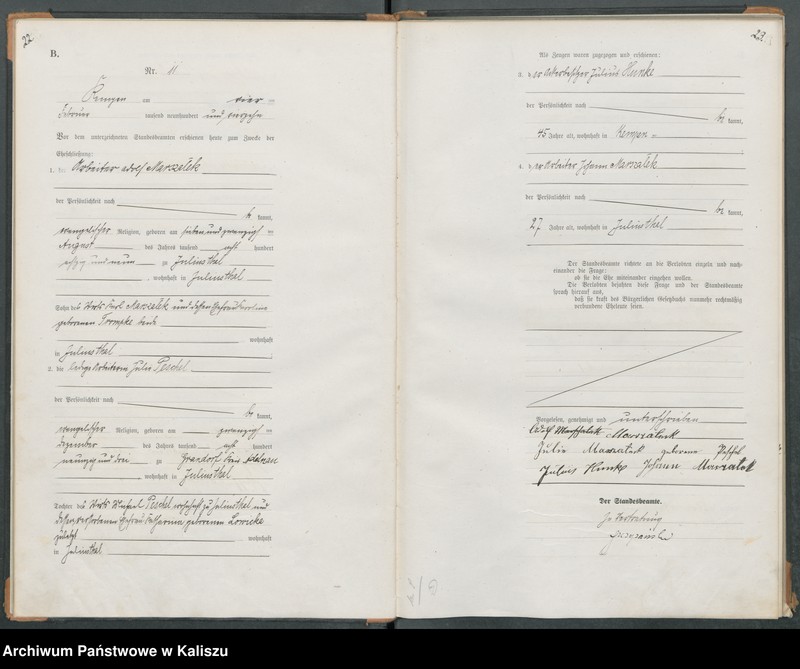 22
B.
Nr. 11
Kempen am vier
Februar tausend neunhundert und vierzehn
Vor dem unterzeichneten Standesbeamten erschienen heute zum Zwecke der
Eheschließung:
1. der Arbeiter Adolf Marszalek
der Persönlichkeit nach
be kannt,
evangelischer Religion, geboren am sieben und zwanzig
August des Jahres tausend acht hundert
achtzig und neun zu Juliusthal
, wohnhaft in Juliusthal
Sohn des Wirts Karl Marszalek und dessen Ehefrau Karoline
geborenen Trompke beide
wohnhaft
in Juliusthal
2. die ledige Arbeiterin Julie Peschel
der Persönlichkeit nach
be kannt,
evangelischer Religion, geboren am zwanzig
Dezember des Jahres tausend acht hundert
neunzig und drei zu Grandorf Kreis Adelnau
, wohnhaft in Juliusthal
Tochter des Wirts Michael Peschel wohnhaft zu Juliusthal und
dessen verstorbenen Ehefrau Katharina geborenen
zuletzt wohnhaft
in Juliusthal
23.
Als Zeugen waren zugezogen und erschienen:
3. der Ackerbesitzer Julius Hunke
der Persönlichkeit nach
be kannt,
45 Jahre alt, wohnhaft in Kempen
4. der Arbeiter Johann Marszalek
der Persönlichkeit nach
be kannt,
27 Jahre alt, wohnhaft in Juliusthal
Der Standesbeamte richtete an die Verlobten einzeln und nach-
einander die Frage:
ob sie die Ehe miteinander eingehen wollen.
Die Verlobten bejahten diese Frage und der Standesbeamte
sprach hierauf aus,
daß sie kraft des Bürgerlichen Gesetzbuchs nunmehr rechtmäßig
verbundene Eheleute seien.
Vorgelesen, genehmigt und unterschrieben
Adolf Marszalek
Julie geborene Peschel
Julius Hunke Johann
Der Standesbeamte.
In Vertretung
Archiwum Państwowe w Kaliszu